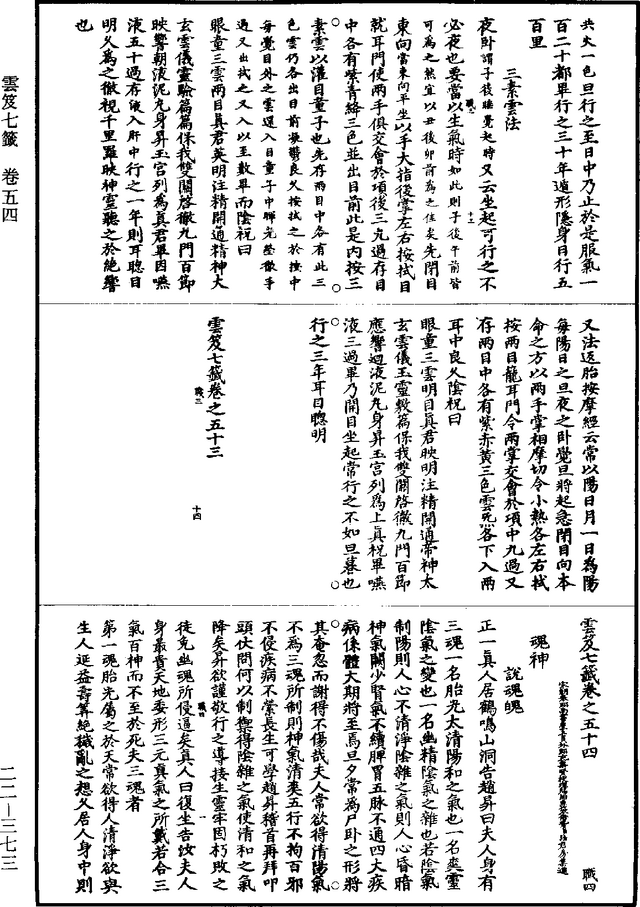 雲笈七籤 卷五四
共大一色旦行之至日中乃止於是服氣一
百二十都畢行之三十年遁形隱身日行五
百里
三素雲法
夜卧謂子後睡覺起時又云坐起可行之不
必夜也要當以生氣時如此則子後午前皆
可為之然宜以丑後卯前為之佳矣先閉目
東向當東向平坐以手大指後掌左右按拭目
就耳門使兩手俱交會於項後三九過存目
中各有紫青絳三色並出目前此是內按三
素雲以灌目童子也先存兩目中各有此三
色雲仍各出目前凝鬱良久按拭之於按中
每覺目外之雲還入目童子中暉光瑩徹手
過又出拭之又入以至數畢而陰祝曰
眼童三雲兩目真君英明注精開通精神太
玄雲儀靈驗篇篇保我雙闕啓徹九門百節
映響朝液泥丸身昇玉宮列為真君畢因嚥
液五十過存液入肝中行之一年則耳聰目
明久為之徹視千里羅映神靈聽之於絶響
也
又法返胎按摩經云常以陽日月一日為陽
每陽日之旦夜之卧覺旦將起急閉目向本
命之方以兩手掌相摩切令小熱各左右拭
按兩目籠耳門令兩掌交會於項中九過又
存兩目中各有紫赤黃三色雲炁各下入兩
耳中良久陰祝曰
眼童三雲明目真君映明注精開通常神太
玄雲儀玉靈敷篇保我雙闕啓徹九門百節
應響迴液泥丸身昇玉宮列為上真祝畢嚥
液三過畢乃開目坐起常行之不如旦暮也
行之三年耳目聰明
雲笈七籤卷之五十三
職三 十四
雲笈七籤卷之五十四 職四
魂神
說魂魄
正一真人居鶴鳴山洞告趙昇曰夫人身有
三魂一名胎光太清陽和之氣也一名爽靈
陰氣之變也一名幽精陰氣之雜也若陰氣
制陽則人心不清淨陰雜之氣則人心昏暗
神氣闕少腎氣不續脾胃五脉不通四大疾
病係體大期將至焉旦夕常為尸卧之形將
其奄忽而謝得不傷哉夫人常欲得清陽氣
不為三魂所制則神氣清爽五行不拘百邪
不侵疾病不縈長生可學趙昇稽首再拜叩
頭伏問何以制禦得陰雜之氣使清和之氣
降矣昇欲謹敬行之導接生靈牢固朽敗之
徒免幽魂所侵逼矣真人曰復坐告汝夫人
身最貴天地委形三元真氣之所戴若合三
氣百神而不至於死夫三魂者
第一魂胎光屬之於天常欲得人清淨欲與
生人延益壽筭絶穢亂之想久居人身中則
二二—三七三